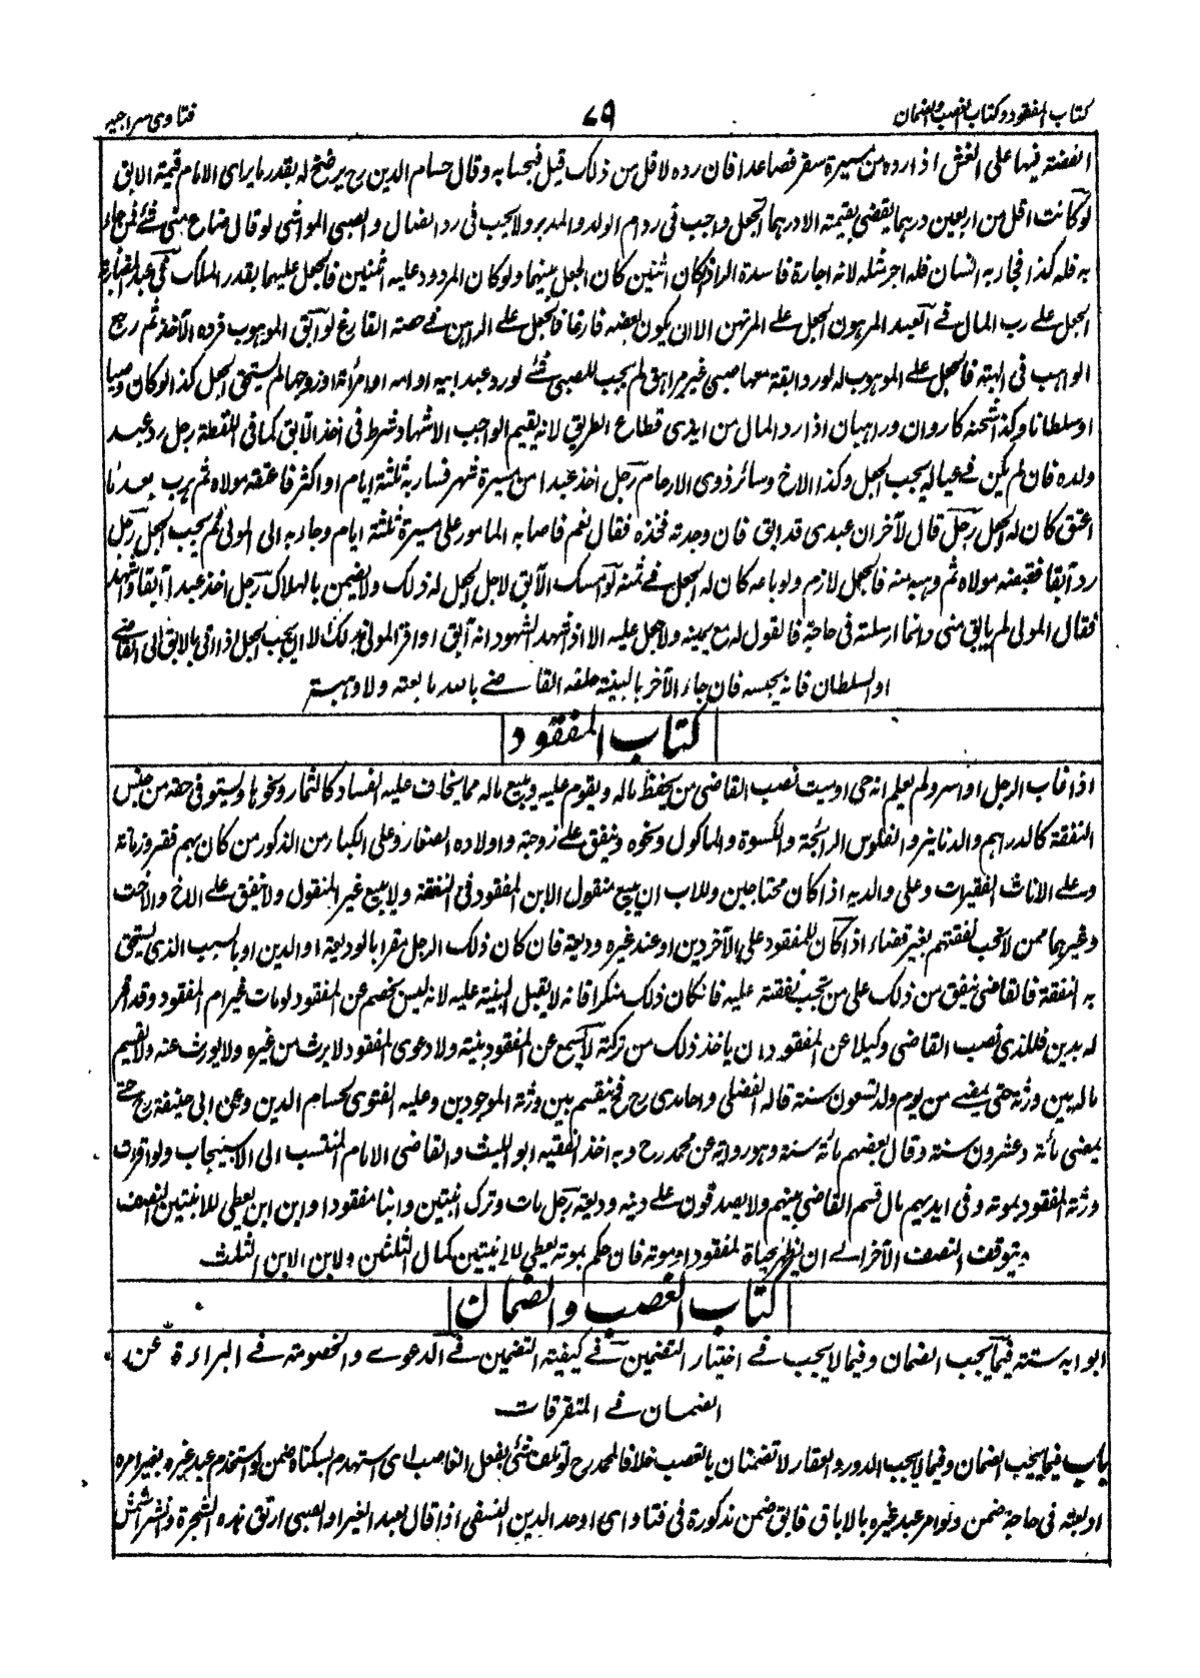 كتاب المفقود وكتاب الغصب والضمان
٧٩
فتاوى سراجيه
الفضة فيها على الغش اذا رده من مسيرة سفر فصاعدا فان رده لاقل من ذلك قيل فبحسابه وقال حسام الدين رح يرضخ له بقدر ما يراى الامام قيمة الابق
لو كانت اقل من اربعين درهما يقضى بقيمته الا درهما الجعل واجب فى رد ام الولد والمدبر ولا يجب فى رد الضال والصبى المواشى لو قال ضاع منى شئ فمن جاء
به فله كذا فجاء به انسان فله اجر مثله لانه اجارة فاسدة الراد اذا كان اثنين كان الجعل بينهما ولو كان المردود عليه اثنين فالجعل عليهما بقدر الملك فى عبد المضاربة
الجعل على رب المال فى العبد المرهون الجعل على المرتهن الا ان يكون بعضه فارغا فالجعل على الراهن فى حصته الفارغ لو آبق الموهوب فرده الآخذ ثم رجع
الواهب فى الهبة فالجعل على الموهوب له لو رد ابقة معها صبى غير مراهق لم يجب للصبى شئ لو رد عبد ابيه او امه او امرأته او زوجها لم يستحق الجعل كذا لو كان وصيا
او سلطانا وكذا شحنه كاروان وراهبان اذا رد المال من ايدى قطاع الطريق لانه يقيم الواجب الاشهاد شرط فى اخذ الآبق كما فى اللقطة رجل رد عبد
ولده فان لم يكن فى عياله يجب الجعل وكذا الاخ وسائر ذوى الارحام رجل اخذ عبدا من مسيرة شهر فسار به ثلثة ايام او اكثر فاعتقه مولاه ثم هرب بعد ما
اعتق كان له الجعل رجل قال لآخر ان عبدى قد ابق فان وجدته فخذه فقال نعم فاصابه المامور على مسيرة ثلثة ايام وجاء به الى المولى لم يجب الجعل رجل
رد آبقا فقبضه مولاه ثم وهبه منه فالجعل لازم ولو باعه كان له الجعل فى ثمنه لو امسك الآبق لاجل الجعل له ذلك ولا يضمن بالهلاك رجل اخذ عبدا آبقا واشهد
فقال المولى لم يابق منى وانما ارسلته فى حاجة فالقول له مع يمينه ولا جعل عليه الا اذا شهد الشهود انه آبق او اقر المولى بذلك لا يجب الجعل اذا اتى بالابق الى القاضى
او السلطان فانه يحبسه فان جاء الآخر بالبينة حلفه القاضى بالله ما بعته ولا وهبته
كتاب المفقود
اذا غاب الرجل او اسر ولم يعلم انه حى او ميت نصب القاضى من يحفظ ماله ويقوم عليه ويبيع ماله مما يخاف عليه الفساد كالثمار ونحوها ويستوفى حقه من جنس
النفقة كالدراهم والدنانير والفلوس الرائجة والكسوة والماكول ونحوه وينفق على زوجته واولاده الصغار وعلى الكبار من الذكور من كان بهم فقر وزمانة
وعلى الاناث الفقيرات وعلى والديه اذا كان محتاجين وللاب ان يبيع منقول الابن المفقود فى النفقة ولا يبيع غير المنقول ولا ينفق على الاخ والاخت
وغيرهما ممن لا تجب نفقتهم بغير قضاء اذا كان للمفقود على الآخر دين او عند غيره وديعة فان كان ذلك الرجل مقرا بالوديعة او الدين او بالسبب الذى يستحق
به النفقة فالقاضى ينفق من ذلك على من تجب نفقته عليه فان كان ذلك منكرا فانه لا يقبل البينة عليه لانه ليس بخصم عن المفقود لو مات غريم المفقود وقد اقر
له بدين فللذى نصب القاضى وكيلا عن المفقود ان ياخذ ذلك من تركته لا تسمع عن المفقود بينة ولا دعوى المفقود لا يرث من غيره ولا يورث عنه ولا يقسم
ماله بين ورثته حتى يمضى من يوم ولد تسعون سنة قاله الفضلى وحامدى رح فح يقسم بين ورثته الموجودين وعليه الفتوى لحسام الدين وعن ابى حنيفة رح حتى
يمضى مائة وعشرون سنة وقال بعضهم مائة سنة وهو رواية عن محمد رح وبه اخذ الفقيه ابو الليث والقاضى الامام المنتسب الى الاسبيجاب ولو اقرت
ورثة المفقود بموته وفى ايديهم مال قسم القاضى بينهم ولا يصدقون على دينه ووديعته رجل مات وترك ابنتين وابنا مفقودا وابن ابن يعطى للابنتين النصف
ويتوقف النصف الآخر الى ان يظهر حياة المفقود او موته فان حكم بموته يعطى للابنتين كمال الثلثين ولابن الابن الثلث
كتاب الغصب والضمان
ابوابه ستة فيما يجب الضمان وفيما لا يجب فى اختيار التضمين فى كيفية التضمين فى الدعوى والخصومة فى البراءة عن
الضمان فى المتفرقات
باب فيما يجب الضمان وفيما لا يجب الدور والعقار لا تضمنان بالغصب خلافا لمحمد رح لو تلف شئ بفعل الغاصب اى استهدم بسكناه ضمن لو استخدم عبد غيره بغير امره
او بعثه فى حاجة ضمن ولو امر عبد غيره بالاباق فابق ضمن مذكورة فى فتاوى اوحد الدين النسفى اذا قال لعبد الغير او الصبى ارتق هذه الشجرة وانثر المشمش